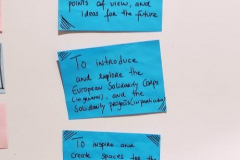 points of view, and
ideas for the future
To introduce
and explore the
European Solidarity Corps
(in general), and the
Solidarity projects (in particular)
To inspire and
create spaces for the